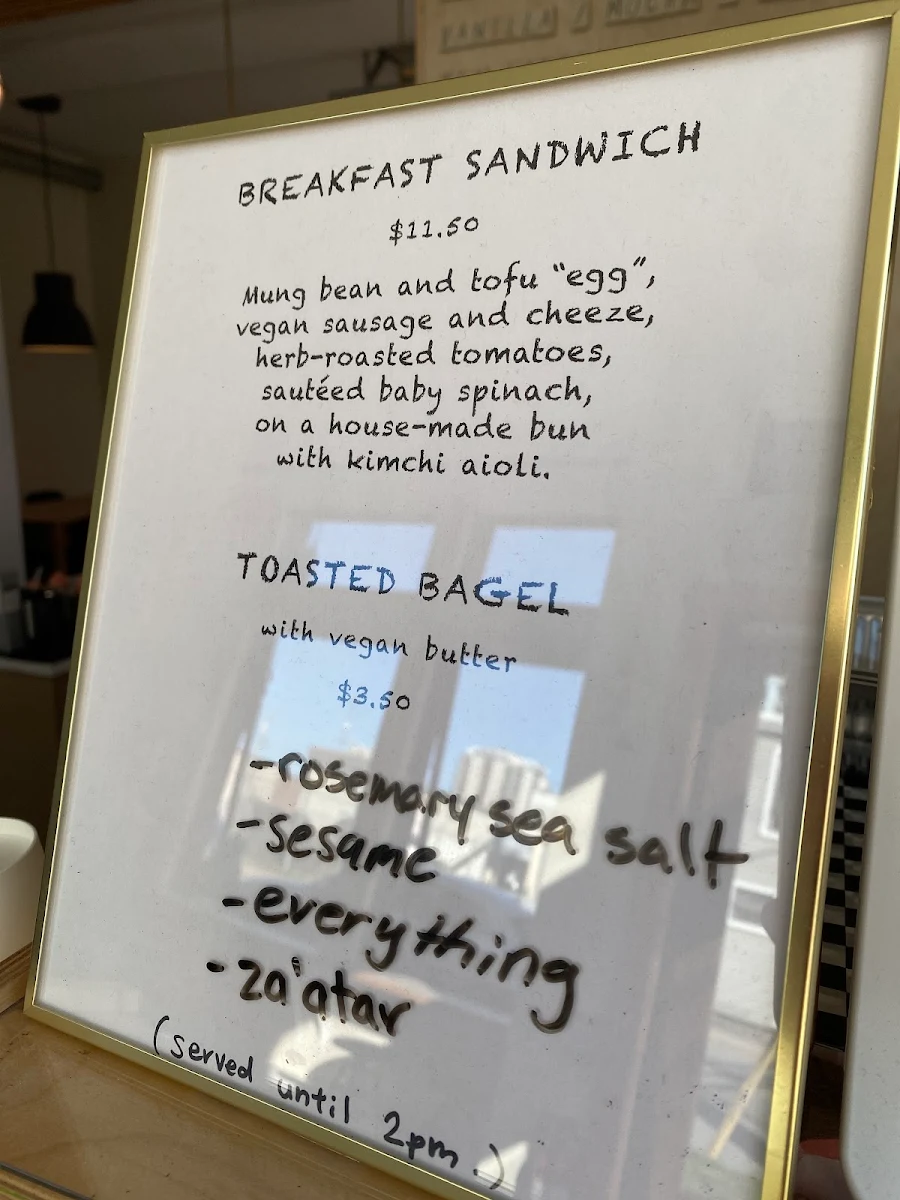 VANILLA / MOCHA
BREAKFAST SANDWICH
$11.50
Mung bean and tofu “egg”,
vegan sausage and cheeze,
herb-roasted tomatoes,
sautéed baby spinach,
on a house-made bun
with kimchi aioli.
TOASTED BAGEL
with vegan butter
$3.50
-rosemary sea salt
-sesame
-everything
-za'atar
(served until 2pm.)